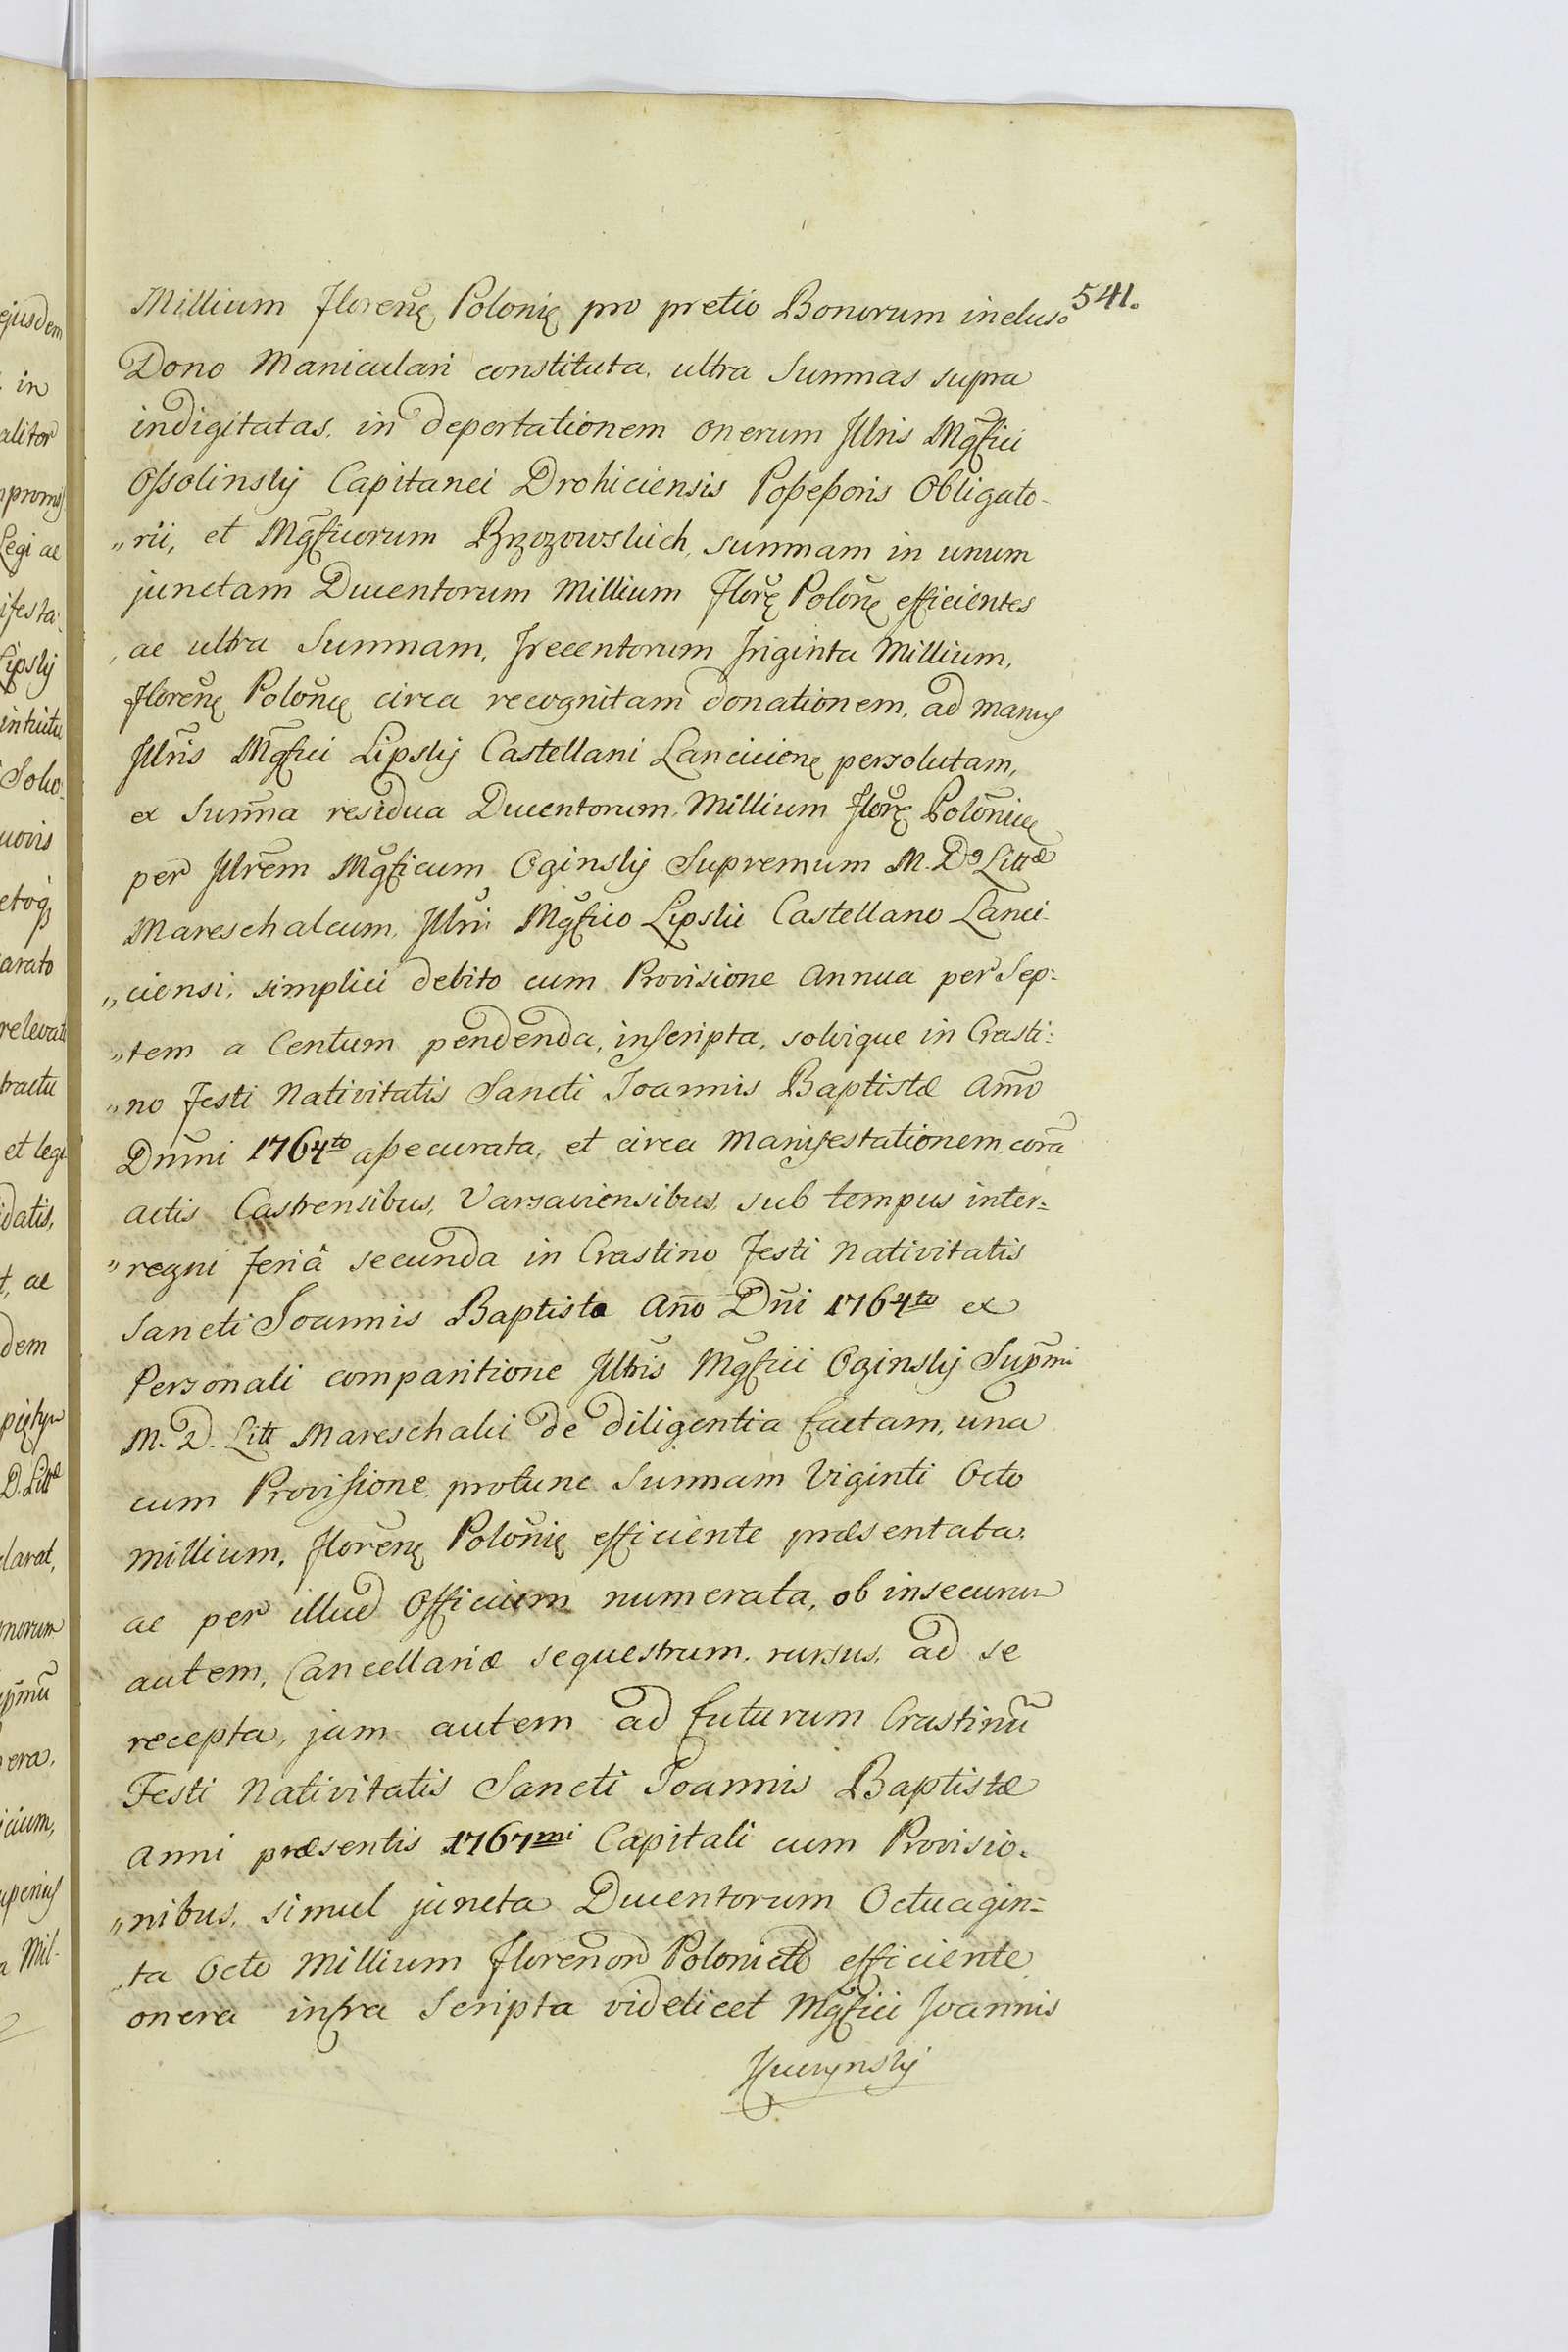 541.
Millium florenę Polonię pro pretio Bonorum incluso
Dono Maniculari constituta, ultra Summas supra
indigitatas, in deportationem onerum Jllris Mgfici
Ossolinskij Capitanei Drohiciensis Possessoris Obligato-
„rii, et Mgficorum Brzozowskich, summam in unum
junctam Ducentorum Millium florę Polonę efficientes
ac ultra Summam, Trecentorum Triginta Millium,
florenę Polonię circa recognitam donationem, ad manus
Jllris Mgfici Lipskij Castellani Lancicienę persolutam,
ex Summa residua Ducentorum Millium florę Polonicę
per Jllrem Mgficum Oginskij Supremum M. D. Littæ
Mareschalcum, Jllri Mgfico Lipskie Castellano Lanci-
„ciensi, simplici debito cum Provisione annua per Sep:
„tem a Centum pendenda, inscripta, solvique in Crasti:
„no festi Nativitatis Sancti Joannis Baptistæ Anno
Dnni 1764to assecurata, et circa Manifestationem cora
actis Castrensibus, Varsaviensibus, sub tempus inter=
„regni feriâ secunda in Crastino festi Nativitatis
Sancti Joannis Baptista Ano Dni 1764to ex
Personali comparitione Jllris Mgfici Oginskij Supmi
M. D. Litt Mareschalci de diligentia factam, una
cum Provisione, protunc Summam Viginti Octo
millium, florenę Polonię efficiente præsentata,
ac per illud Officium numerata, ob insecurum
autem, Cancellariæ sequestrum, rursus, ad se
recepta, jam autem ad futurum Crastinu
Festi Nativitatis Sancti Joannis Baptistæ
anni præsentis 1767mi Capitali cum Provisio-
„nibus, simul juncta Ducentorum Octuagin=
„ta Octo Millium florenor Polonical efficiente
onera infra Scripta videlicet Mgfici Joannis
Kuczynskij